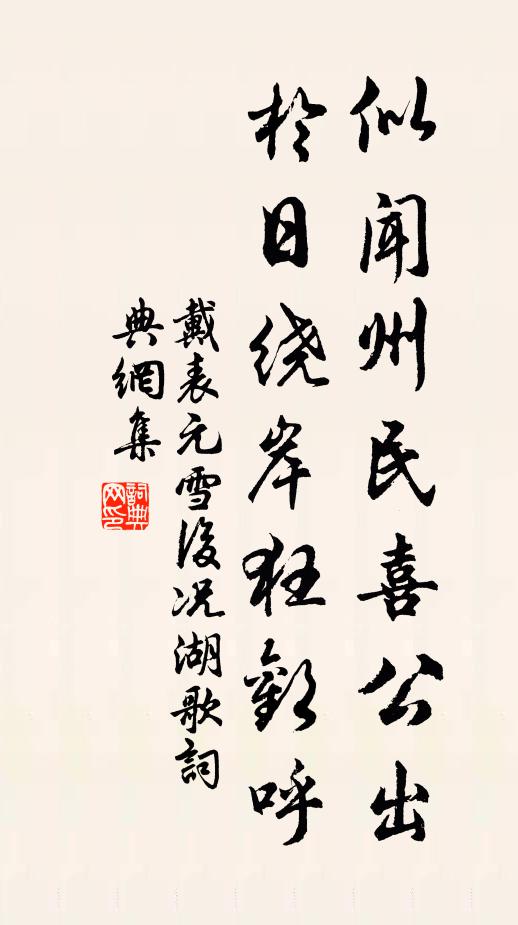 似闻州民喜公出
於日绕岸狂歡呼
戴表元雪後况湖歌詞
典網集
詞典
网印